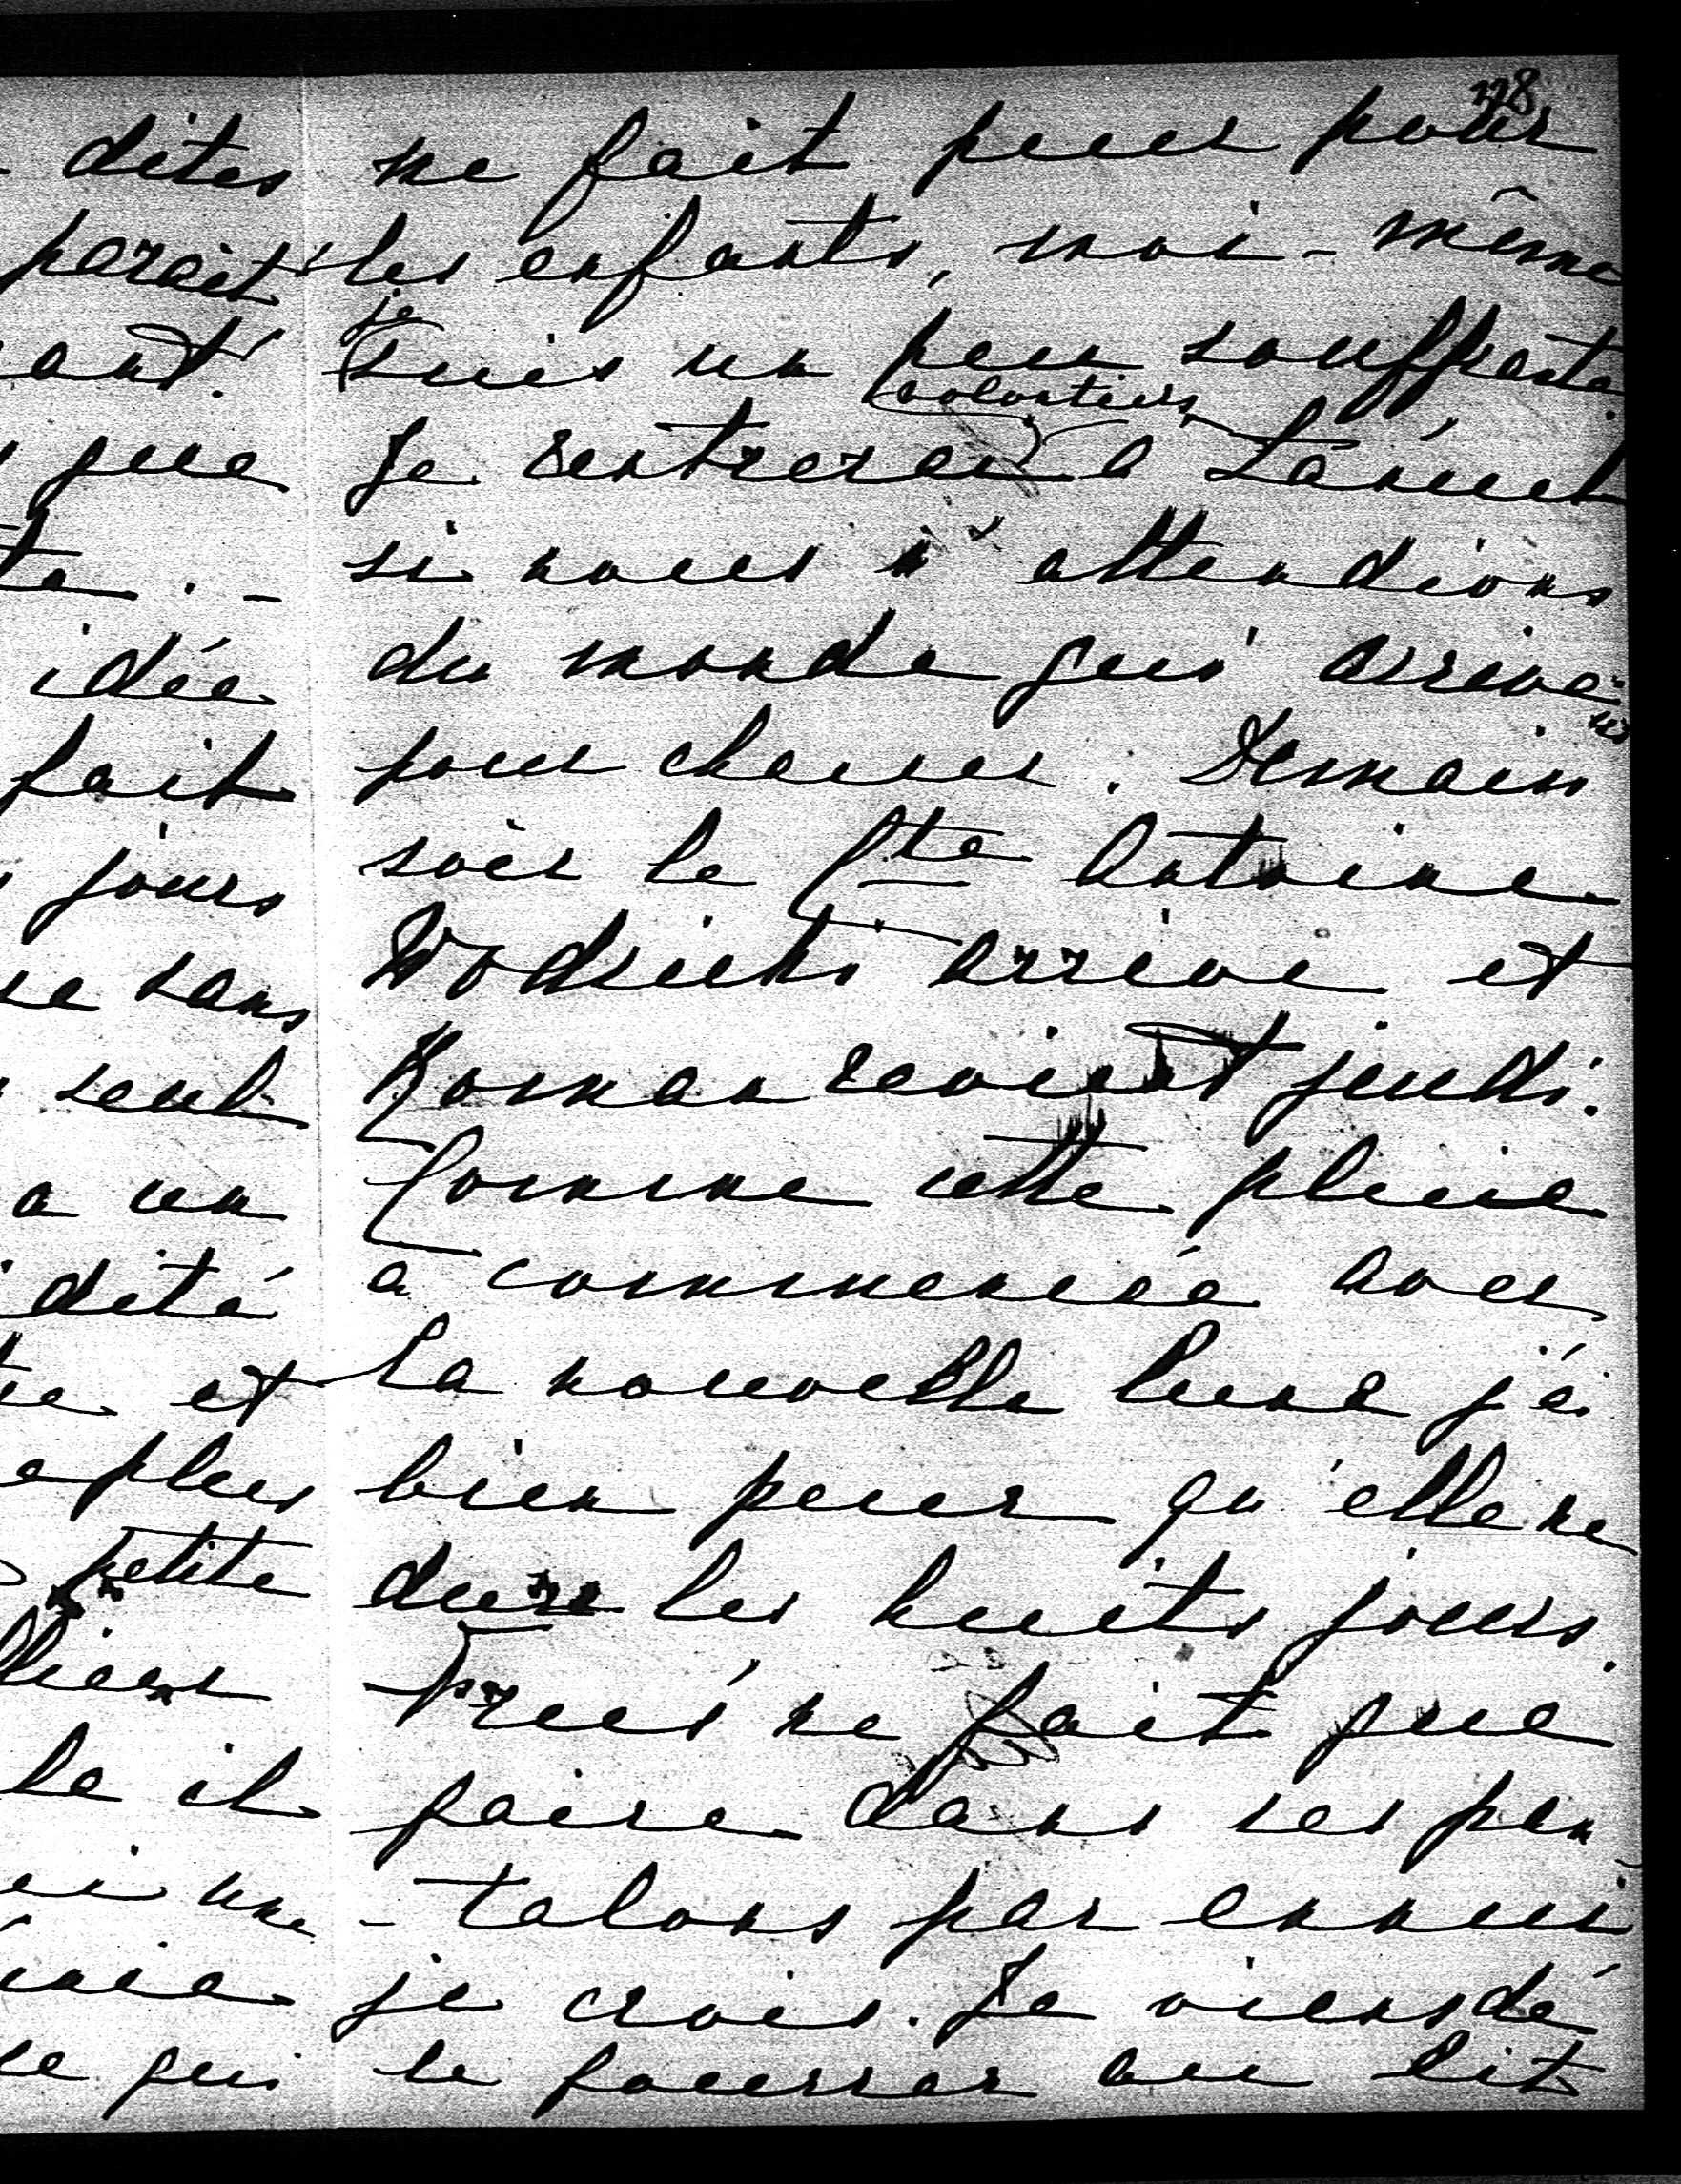 328
dites
paraît
ant.
que
te. -
idée
fait
jours
se sans
seul
a un
dité
te et
e plus
petite
le il
ei une
se qui
ne fait peur pour
les enfants, moi-même
je
suis un peu souffrante.
volontiers
Je rentrerai à Łańcut
si nous n'attendions
du monde qui arrive
pour chasser. Demain
soir le Cte Antoine
Wodzicki arrive et
Roman revient jeudi.
Comme cette pluie
a commencée avec
la nouvelle lune j'ai
bien peur qu'elle ne
dure les huits jours.
ne fait que
faire dans ses pan
-talons par ennui
je crois. Je viens de
le fourrer au lit